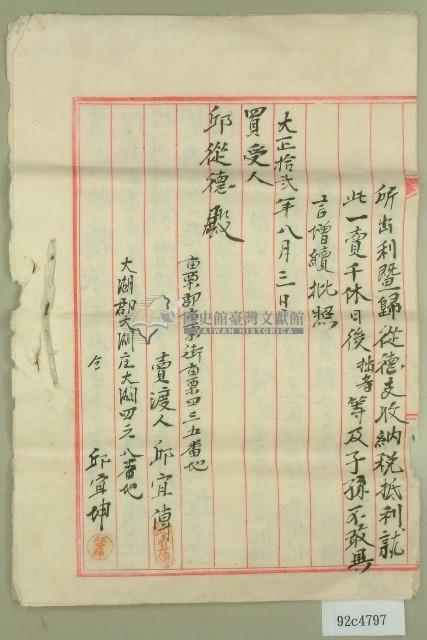 所出利暨歸從德支收納税抵利就
此一賣千休日後拙者等及子孫不敢異
言增續批照
大正拾弍年八月三日
買受人
邱從德殿
苗栗郡苗栗街苗栗四三五番地
賣渡人 邱宜傳
大湖郡大湖庄大湖四六八番地
仝 邱宜坤
國史館臺灣文獻館
TAIWAN HISTORICA
92c4797